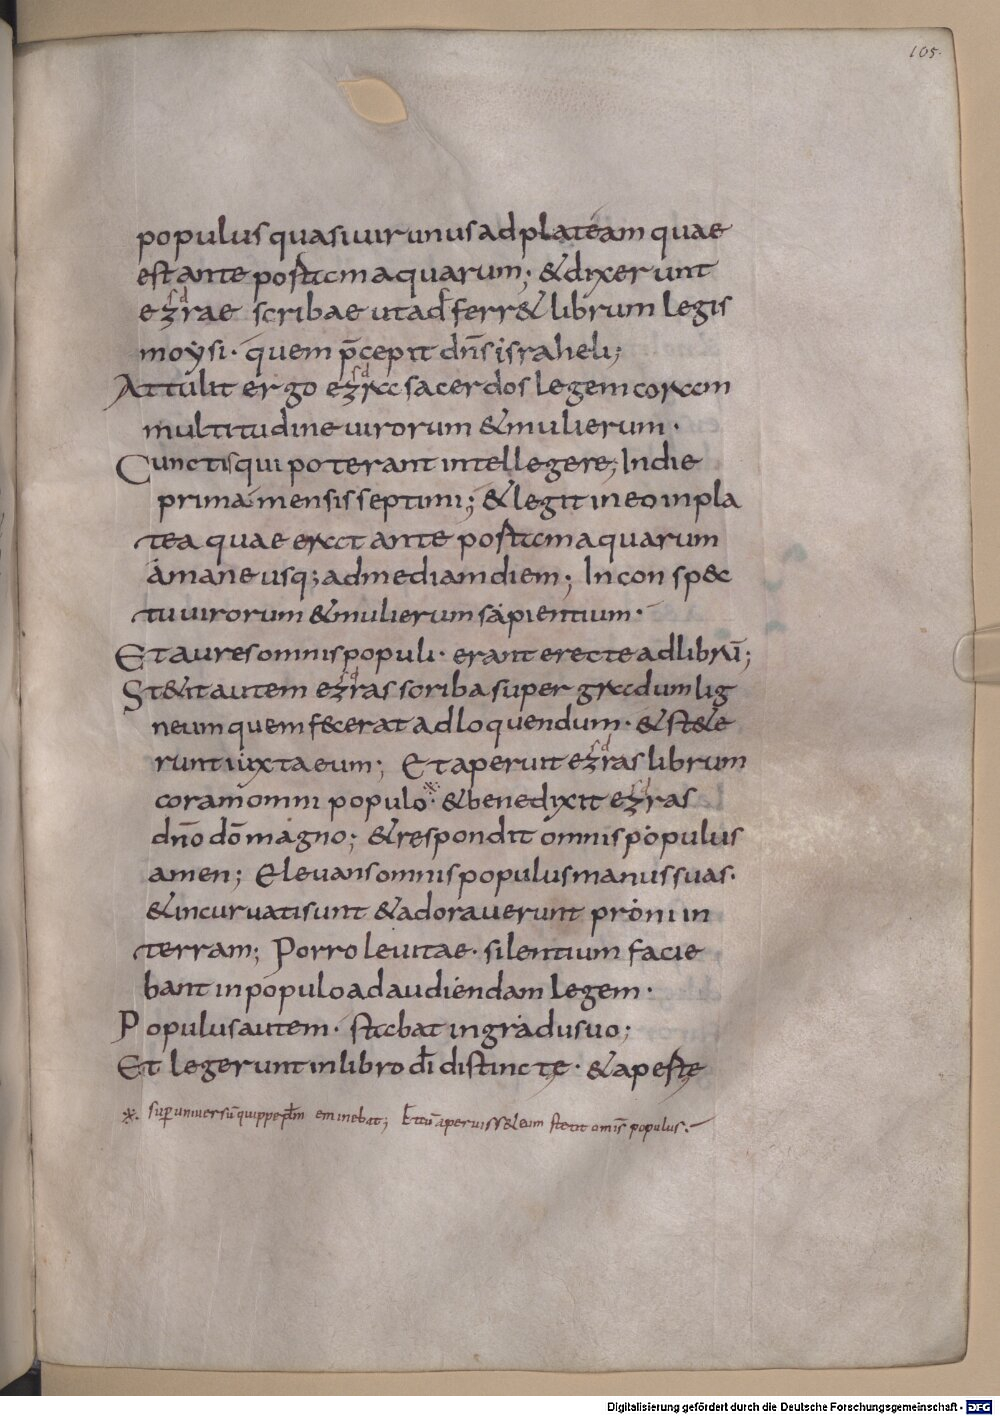 105.
populus quasi uir unus ad plateam quae
est ante portam aquarum; & dixerunt
ezrae scribae ut adferr& librum legis
sd
moysi· quem p̄cepit dn̄s israheli;
Attulit ergo ezra sacerdos legem coram
sd
multitudine uirorum & mulierum·
Cunctisqui poterant intellegere; In die
prima mensis septimi; & legit in eo in pla
tea quae erat ante portam aquarum
amane usq; ad mediam diem; In conspec
tu uirorum & mulierum sapientium·
Et aures omnis populi· erant erecte ad librū;
St&it autem ezras scriba super gradum lig
sd
neum quem fecerat ad loquendum· & st&e
runt iuxta eum; Et aperuit ezras librum
sd
coram omni populo※· & benedixit ezras
sd
dn̄o dō magno; & respondit omnis populus
amen; Eleuans omnis populus manus suas·
& incuruati sunt & adorauerunt proni in
terram; Porro leuitae· silentium facie
bant in populo ad audiendam legem·
Populus autem· stabat in gradu suo;
Et legerunt in libro dī distincte· & apeste
※. sup uniuersū quippe pl̄m eminebat; Et cū aperuiss& eum stetit om̄is populus·
Digitalisierung gefördert durch die Deutsche Forschungsgemeinschaft · DFG